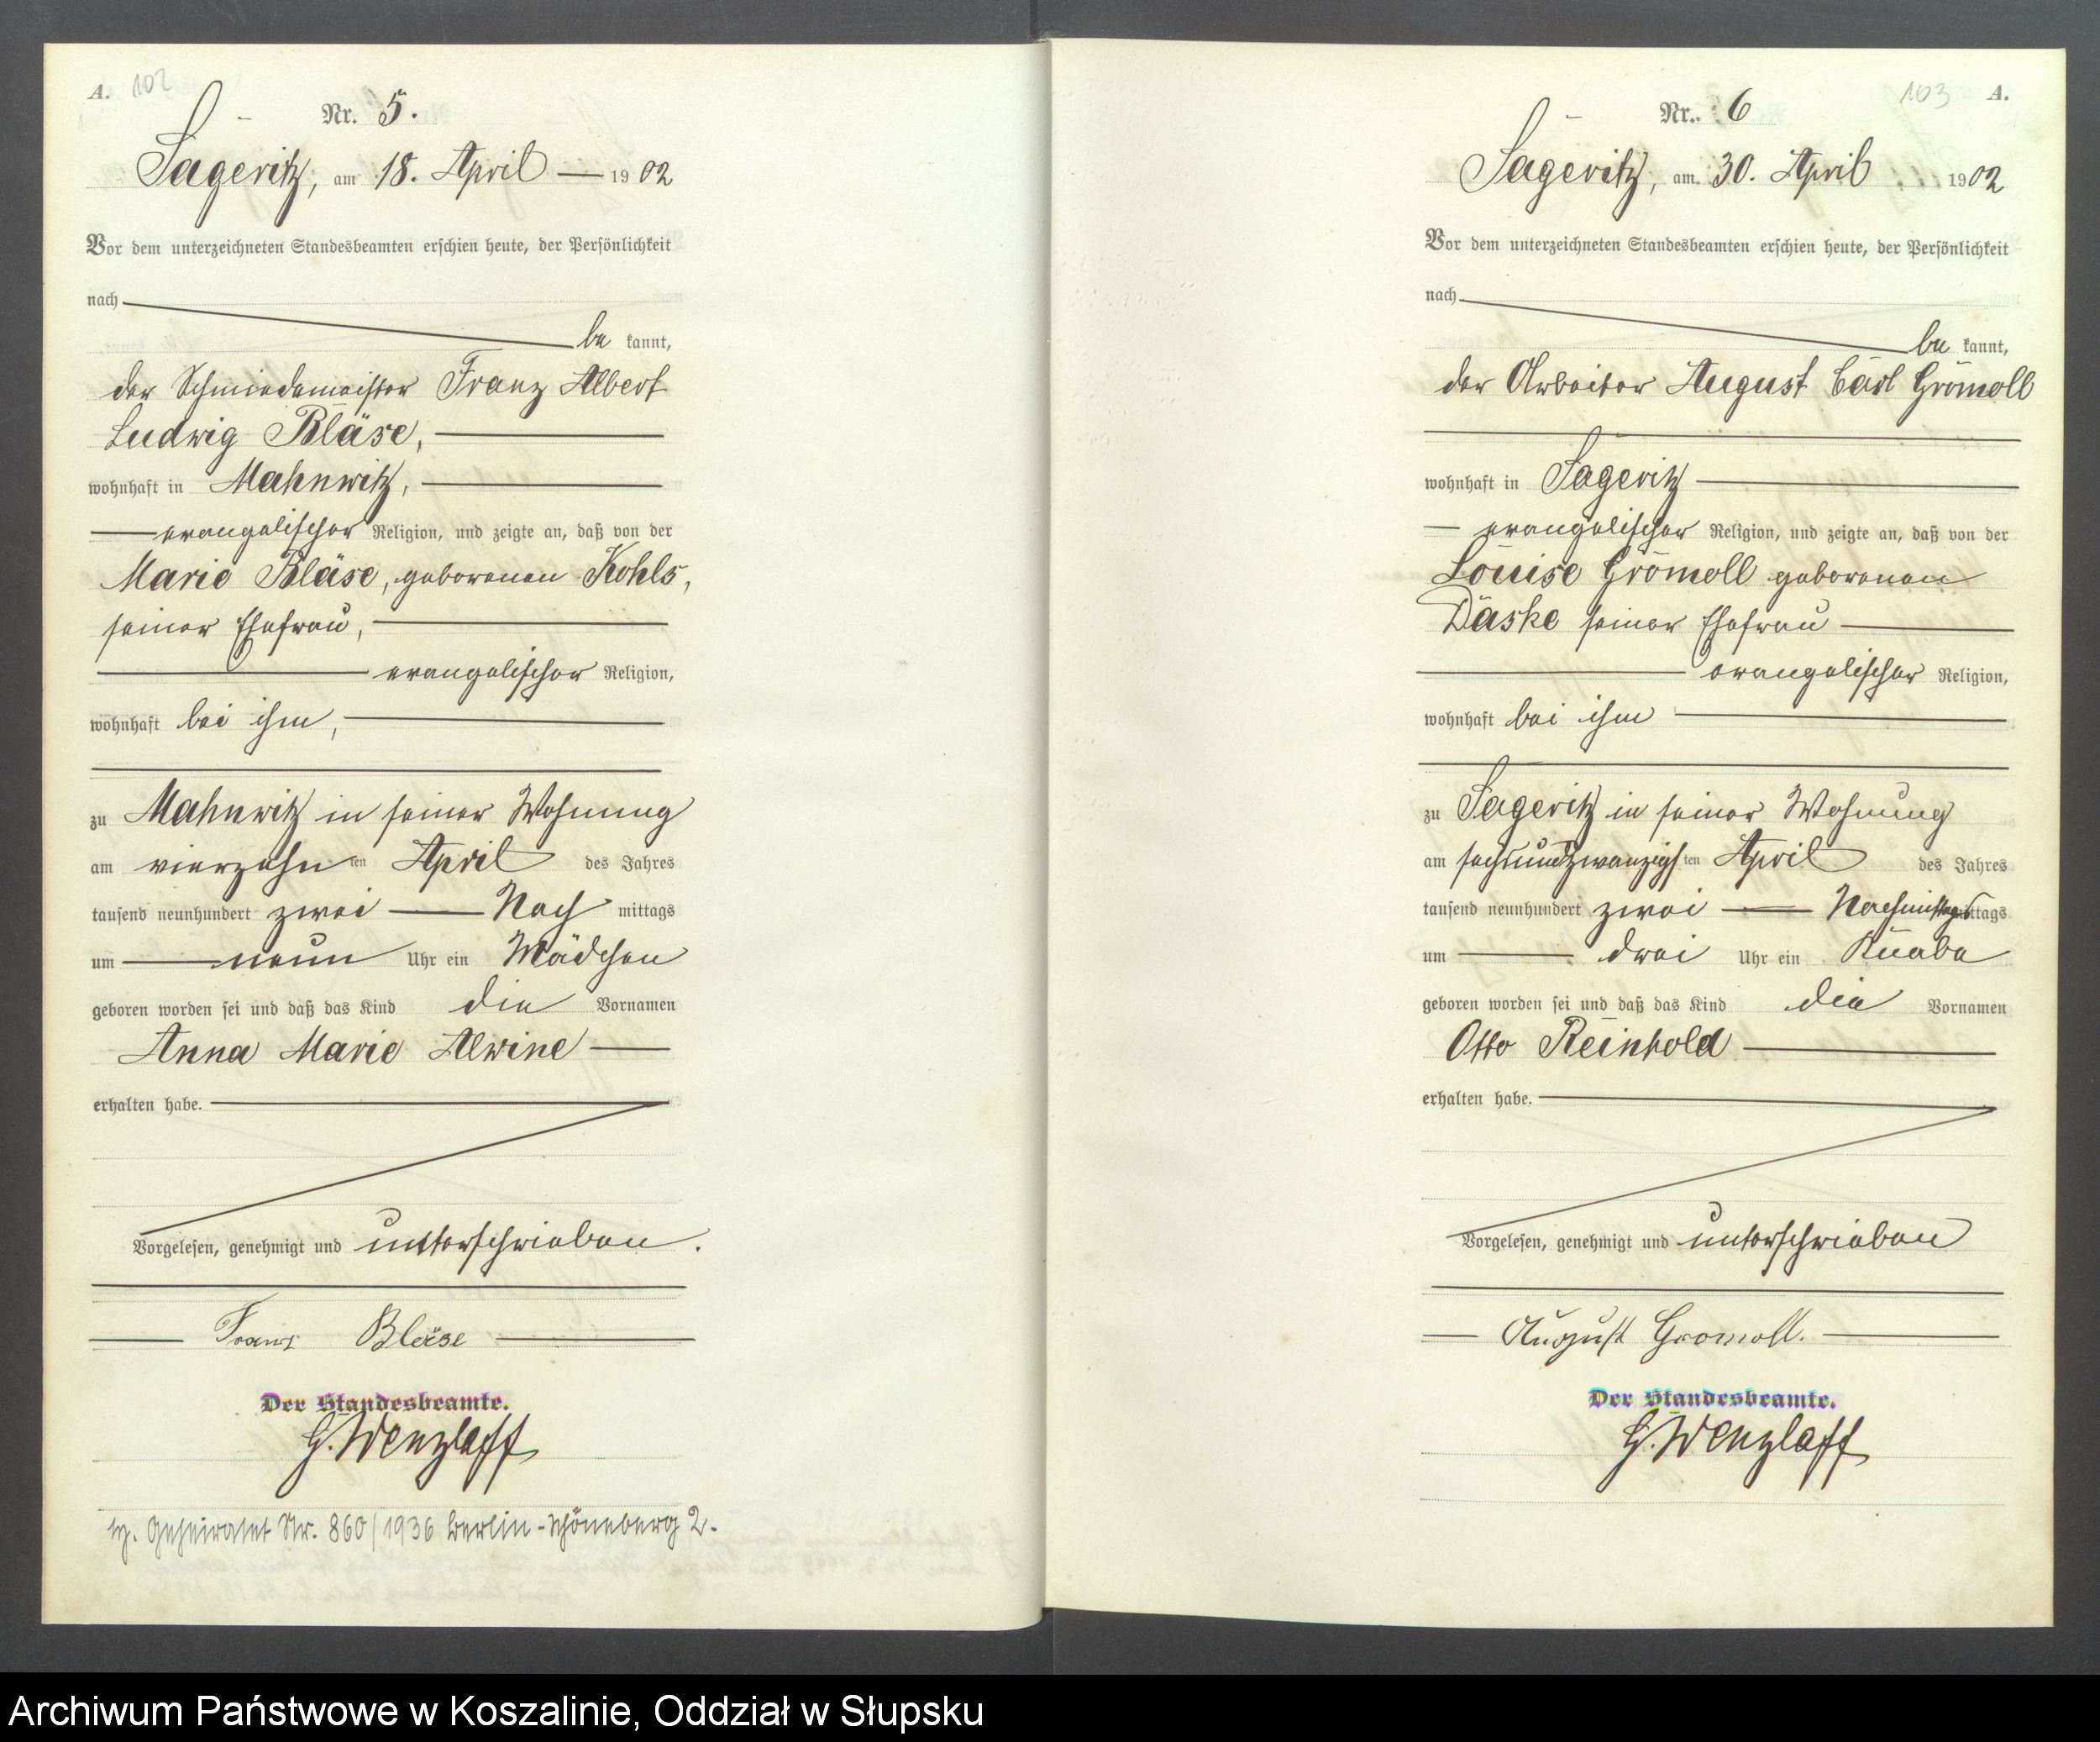 A. 102
Nr. 5.
Sageritz, am 18. April 1902
Vor dem unterzeichneten Standesbeamten erschien heute, der Persönlichkeit
nach
be kannt,
der Schmiedemeister Franz Albert
Ludwig Bläse,
wohnhaft in Mahnwitz,
evangelischer Religion, und zeigte an, daß von der
Marie Bläse, geborenen Kohls,
seiner Ehefrau,
evangelischer Religion,
wohnhaft bei ihm,
zu Mahnwitz in seiner Wohnung
am vierzehn ten April des Jahres
tausend neunhundert zwei Nach mittags
um neun Uhr ein Mädchen
geboren worden sei und daß das Kind die Vornamen
Anna Marie Alwine
erhalten habe.
Vorgelesen, genehmigt und unterschrieben.
Franz Bläse
Der Standesbeamte.
G. Wenzlaff
Nr. 860/1936 Berlin-Schöneberg 2.
103 A.
Nr. 6
Sageritz, am 30. April 1902
Vor dem unterzeichneten Standesbeamten erschien heute, der Persönlichkeit
nach
be kannt,
der Arbeiter August Carl Gromoll
wohnhaft in Sageritz
evangelischer Religion, und zeigte an, daß von der
Louise Gromoll geborenen
Daske seiner Ehefrau
evangelischer Religion,
wohnhaft bei ihm
zu Sageritz in seiner Wohnung
am sechsundzwanzigs ten April des Jahres
tausend neunhundert zwei Nachmittags mittags
um drei Uhr ein Knabe
geboren worden sei und daß das Kind die Vornamen
Otto Reinhold
erhalten habe.
Vorgelesen, genehmigt und unterschrieben
August Gromoll.
Der Standesbeamte.
G. Wenzlaff
Archiwum Państwowe w Koszalinie, Oddział w Słupsku